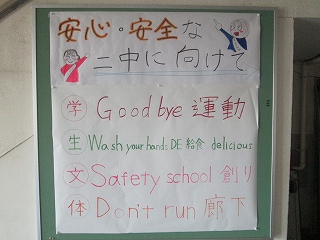 安心・安全な
二中に向けて
学 Good bye 運動
生 Wash your hands DE 給食 delicious
文 Safety school 創り
体 Don't run 廊下